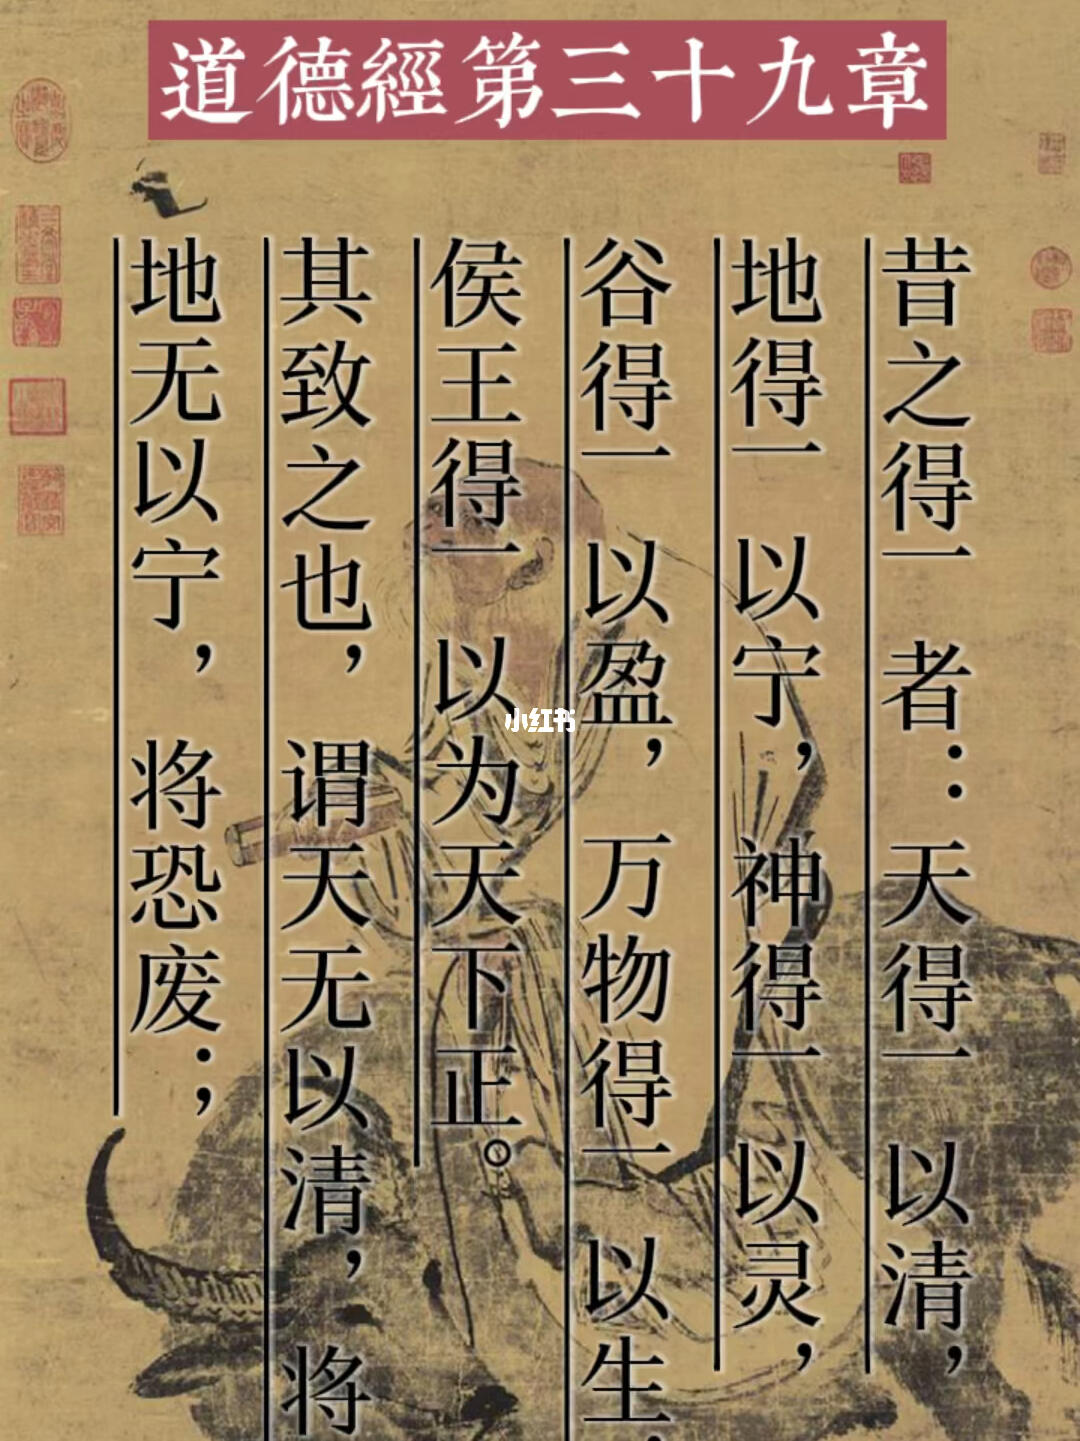 道德經第三十九章
昔之得一 者：天得一 以清，
地得一 以宁，神得一 以灵，
谷得一 以盈，万物得一 以生，
侯王得一 以为天下正。
其致之也，谓天无以清，将
地无以宁，将恐废；
小红书